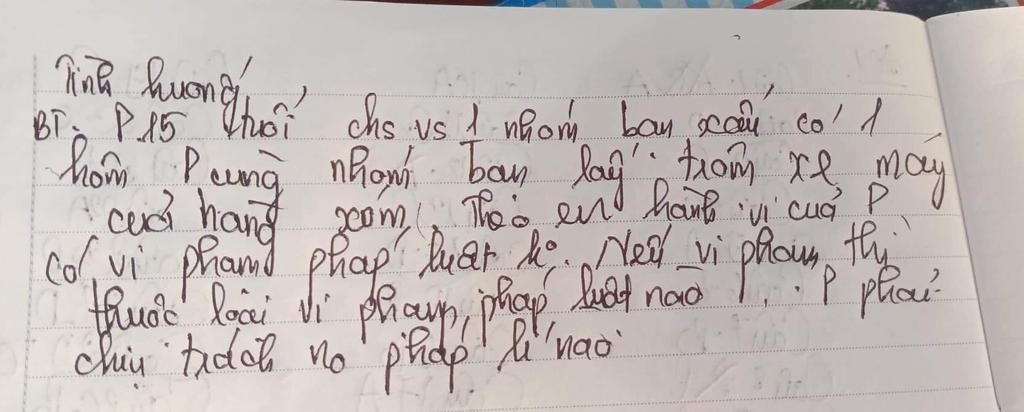 Tình huống
BT. P 15 tuổi chs vs 1 nhóm bạn xấu có 1
hôm P cùng nhóm bạn lấy trộm xe máy
của hàng xóm, Theo em hành vi của P
có vi phạm pháp luật k°. Nếu vi phạm thì
thuộc loại vi phạm pháp luật nào P phải
chịu trách no pháp lí nào